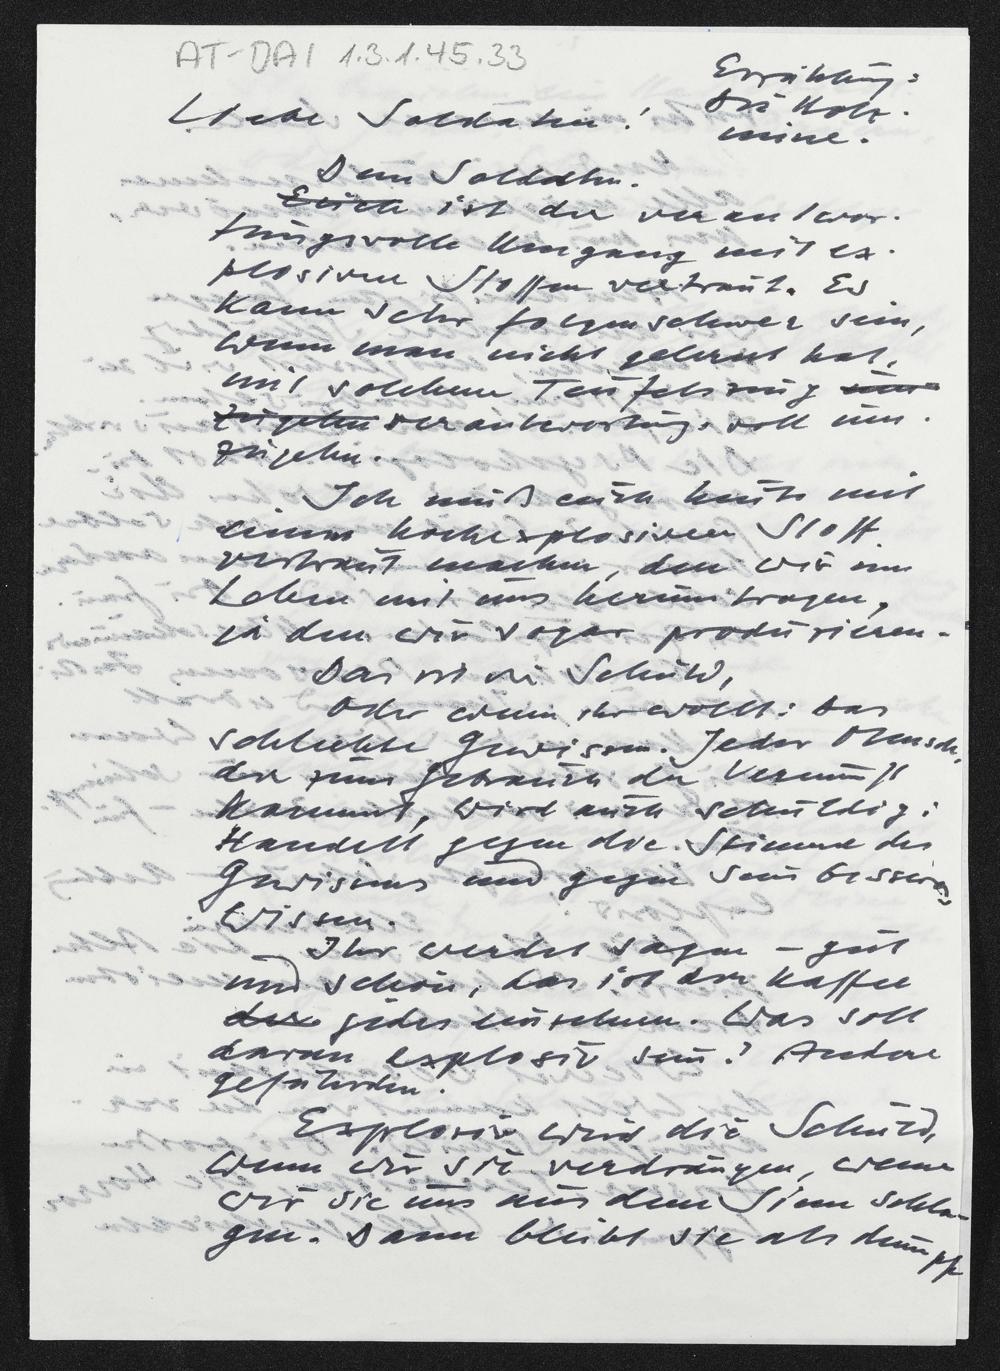 AT-DAI 1.3.1.45.33
Erzählung:
Die Holz-
mine.
Liebe Soldaten!
Dem Soldaten.
Euch ist der verantwor-
tungsvolle Umgang mit ex-
plosiven Stoffen vertraut. Es
kann sehr folgenschwer sein,
wenn man nicht gelernt hat,
mit solchem Teufelszeug um
zugehen verantwortungsvoll um-
zugehn.
Ich muß euch heute mit
einem hochexplosiven Stoff
vertraut machen, den wir im
Leben mit uns herumtragen,
ja den wir sogar produzieren.
Das ist die Schuld,
Oder wenn ihr wollt: Das
schlechte Gewissen. Jeder Mensch,
der zum Gebrauch der Vernunft
kommt, wird auch schuldig:
Handelt gegen die Stimme des
Gewissens und gegen sein besseres
Wissen.
Ihr werdet sagen – gut
und schön, das ist der Kaffee
der jedes
daran explosiv sein? Andere
gefährden.
Explosiv wird die Schuld,
wenn wir sie verdrängen, wenn
wir sie uns aus dem Sinn schla-
gen. Dann bleibt sie als dumpfe